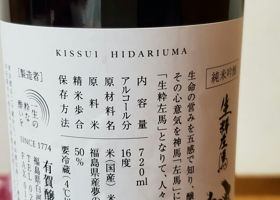 KISSUI HIDARIUMA
純米吟醸
生粋左馬
生命の営みを五感で知り、醸
その心意気を神馬「左馬」に
「生粋左馬」となりて、人々
内容量 720ml
アルコール分 16度
原材料名 米(国産)、米
原料米 福島県産夢の
精米歩合 50%
保存方法 要冷蔵(4℃
【製造者】
一生の
粋な
酔いを
SINCE 1774
有賀醸
福島県白河
TEL
FAX